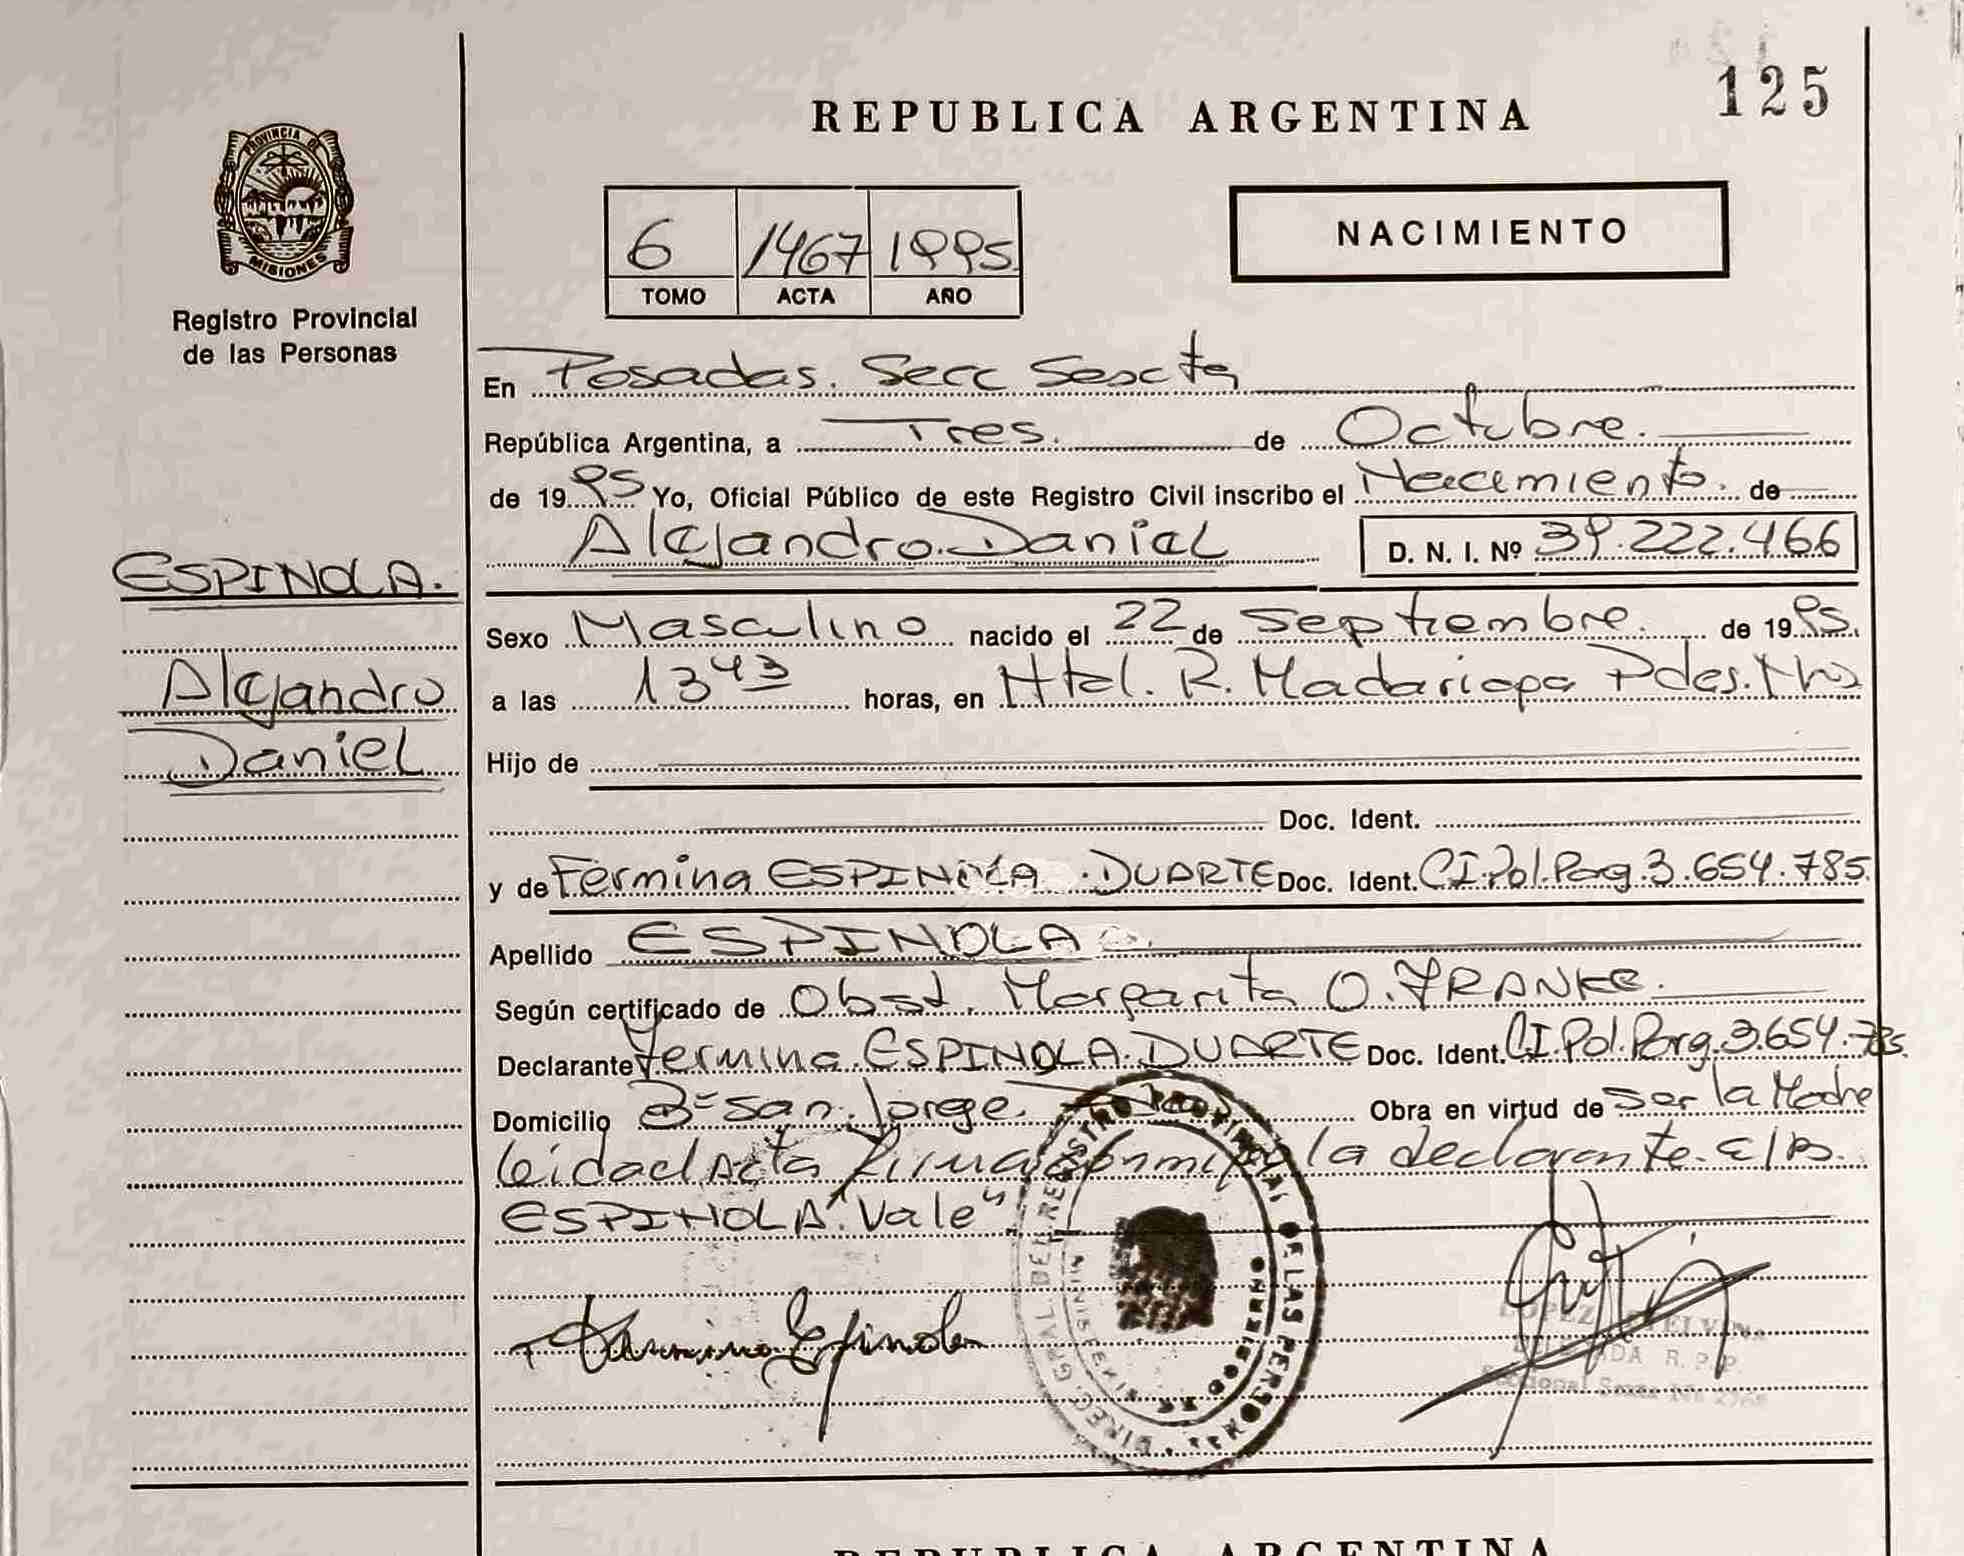 125
REPUBLICA ARGENTINA
PROVINCIA DE
MISIONES
Registro Provincial
de las Personas
6 1467 1995
TOMO ACTA AÑO
NACIMIENTO
En Posadas. Secc Sexta
República Argentina, a Tres. de Octubre.
de 1995 Yo, Oficial Público de este Registro Civil inscribo el Nacimiento. de
Alejandro Daniel D. N. I. Nº 39.222.466
ESPINOLA.
Alejandro
Daniel
Sexo Masculino nacido el 22 de Septiembre. de 1995.
a las 13 43 horas, en Htal. R. Madariaga Pdas. Mns
Hijo de
Doc. Ident.
y de Fermina ESPINOLA . DUARTE Doc. Ident. CI.Pol.Parg.3.654.785.
Apellido ESPINOLA
Según certificado de Obst. Margarita O. FRANKE.
Declarante Fermina ESPINOLA DUARTE Doc. Ident. CI.Pol.Parg.3.654.785.
Domicilio Bº San Jorge. Obra en virtud de Ser la Madre
leida el Acta firma conmigo la declarante. E/R.
ESPINOLA "Vale"
Fermina Espinola
DIREC. GRAL. DEL REGISTRO PROVINCIAL DE LAS PERSONAS
LOPEZ ETELVINA
DELEGADA R. P. P.
REPUBLICA ARGENTINA